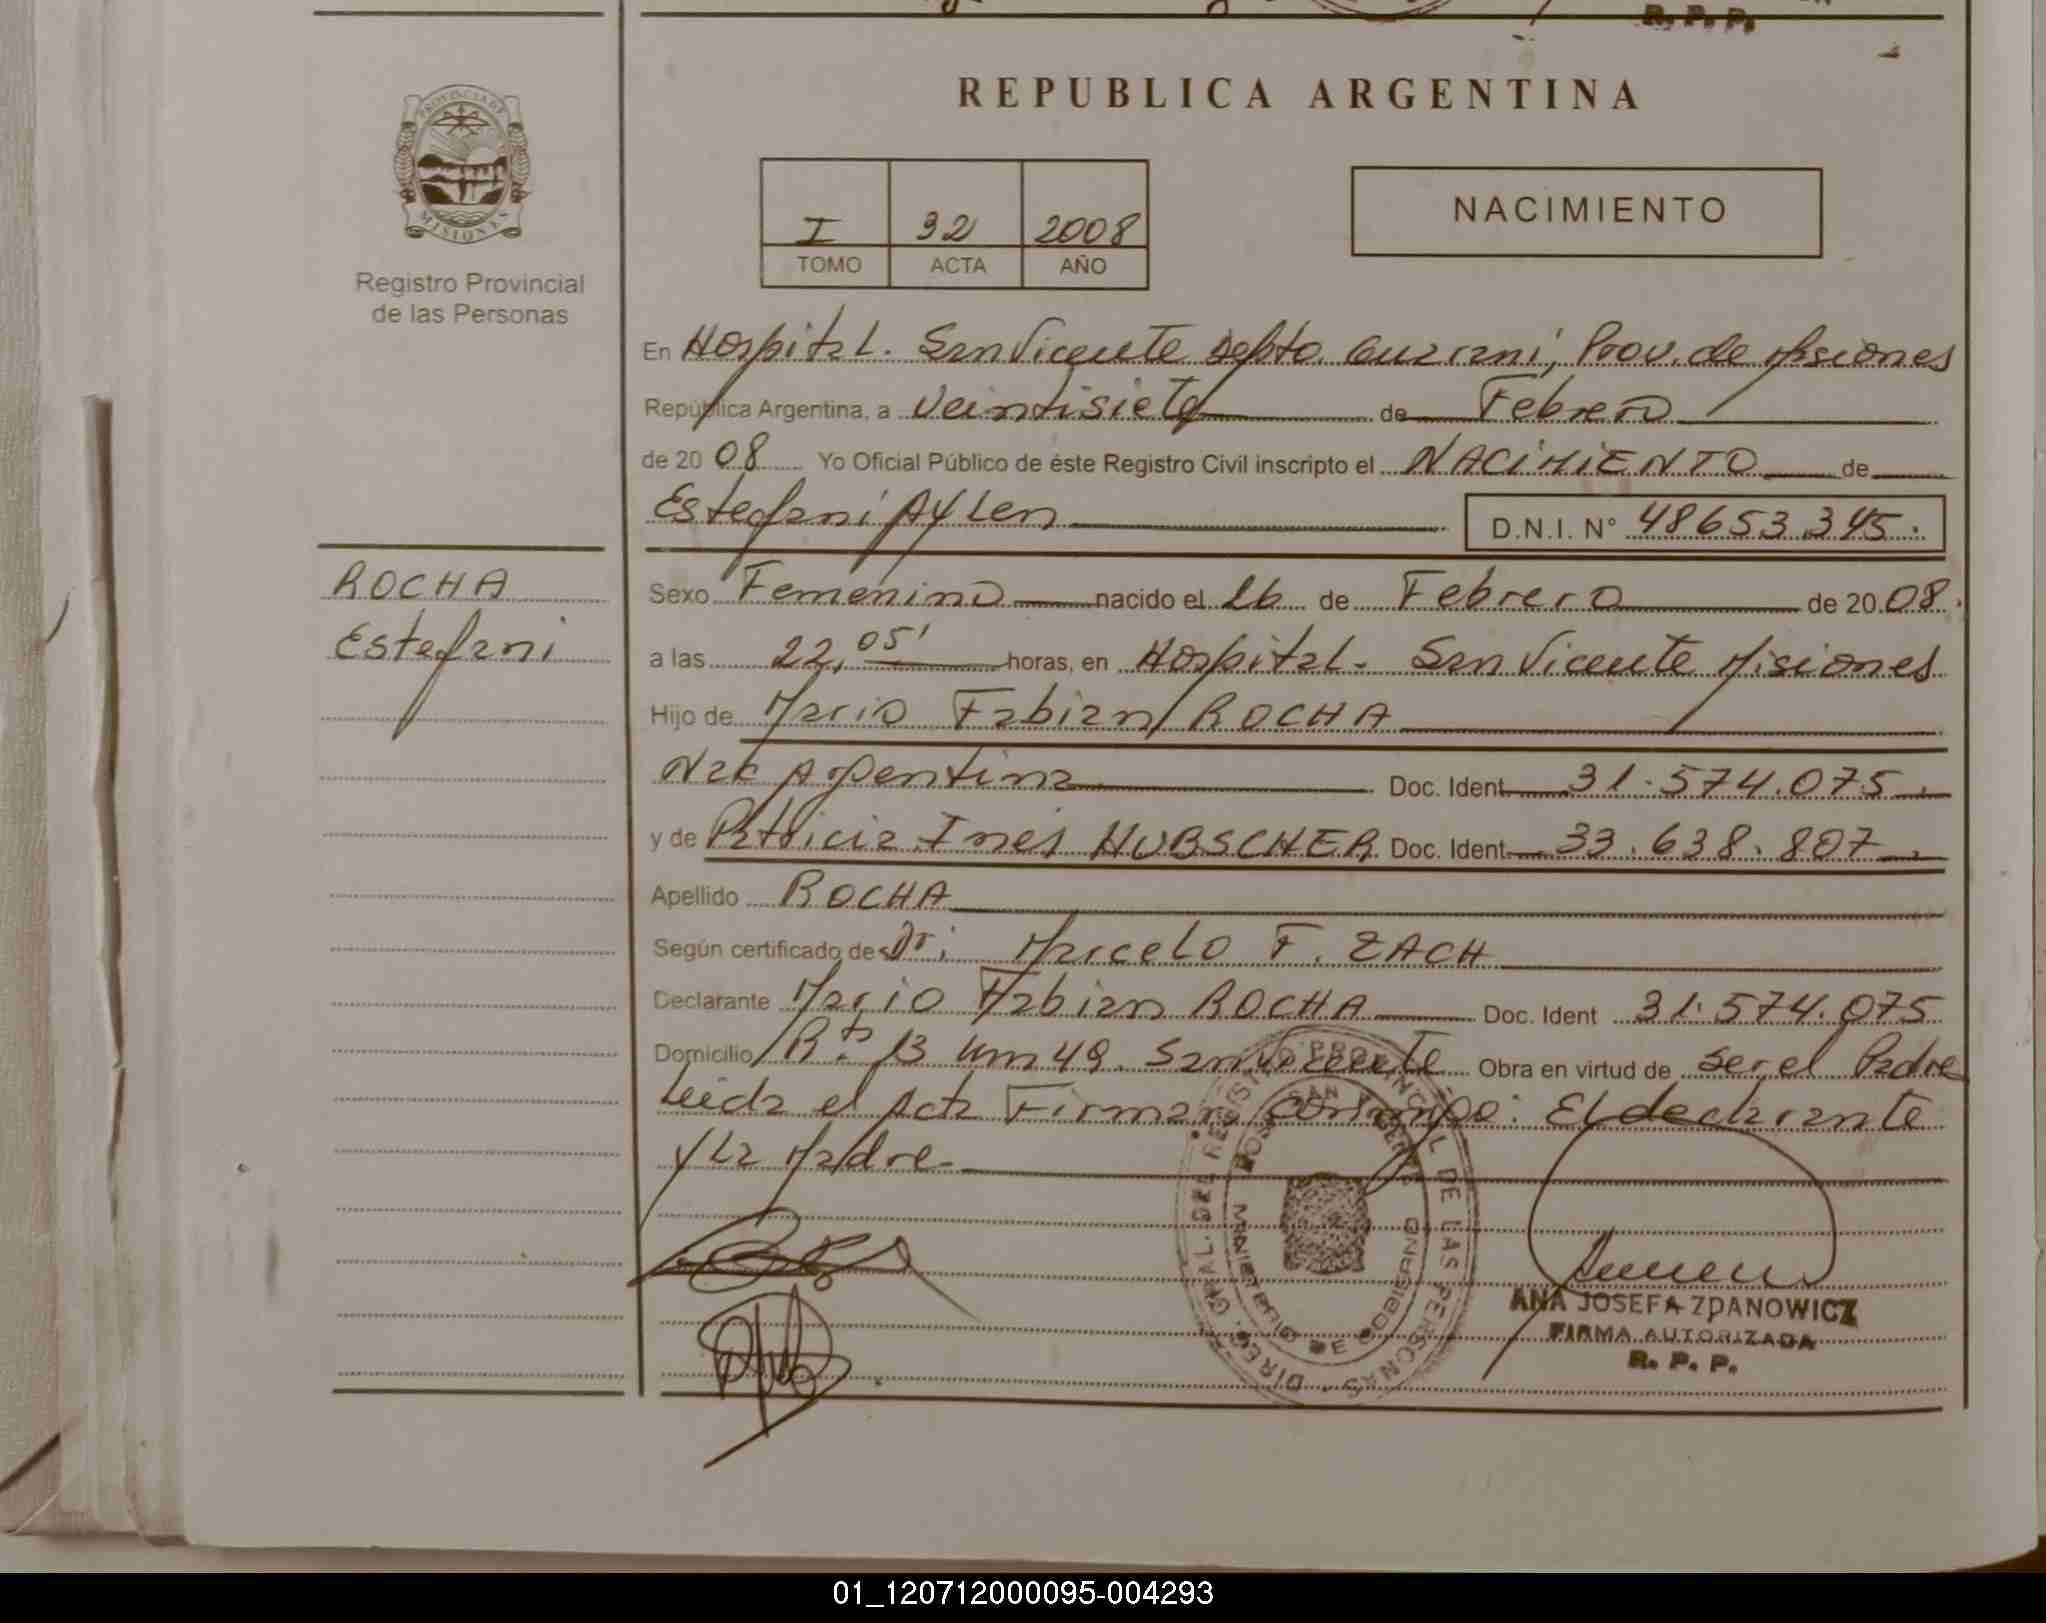 R. P. P.
REPUBLICA ARGENTINA
PROVINCIA DE
MISIONES
Registro Provincial
de las Personas
I 32 2008
TOMO ACTA AÑO
NACIMIENTO
En Hospital. San Vicente Depto. Guarani, Prov. de Misiones
República Argentina, a veintisiete de Febrero
de 20 08 Yo Oficial Público de éste Registro Civil inscripto el NACIMIENTO de
Estefani Aylen D.N.I. N° 48653.345.
ROCHA
Estefani
Sexo Femenino nacido el 26 de Febrero de 20 08.
a las 22,05' horas, en Hospital. San Vicente Misiones
Hijo de Mario Fabian ROCHA
Nac Argentina Doc. Ident 31.574.075.
y de Patricia Ines HUBSCHER Doc. Ident 33.638.807.
Apellido ROCHA
Según certificado de Dr: Marcelo F. ZACH
Declarante Mario Fabian ROCHA Doc. Ident 31.574.075
Domicilio Rta 13 Km 49. San Vicente Obra en virtud de ser el Padre
Leida el Acta Firman conmigo: El declarante
y La Madre
DIREC. GRAL. DEL REGISTRO PROVINCIAL DE LAS PERSONAS
MINISTERIO DE GOBIERNO
ANA JOSEFA ZDANOWICZ
FIRMA AUTORIZADA
R. P. P.
01_120712000095-004293